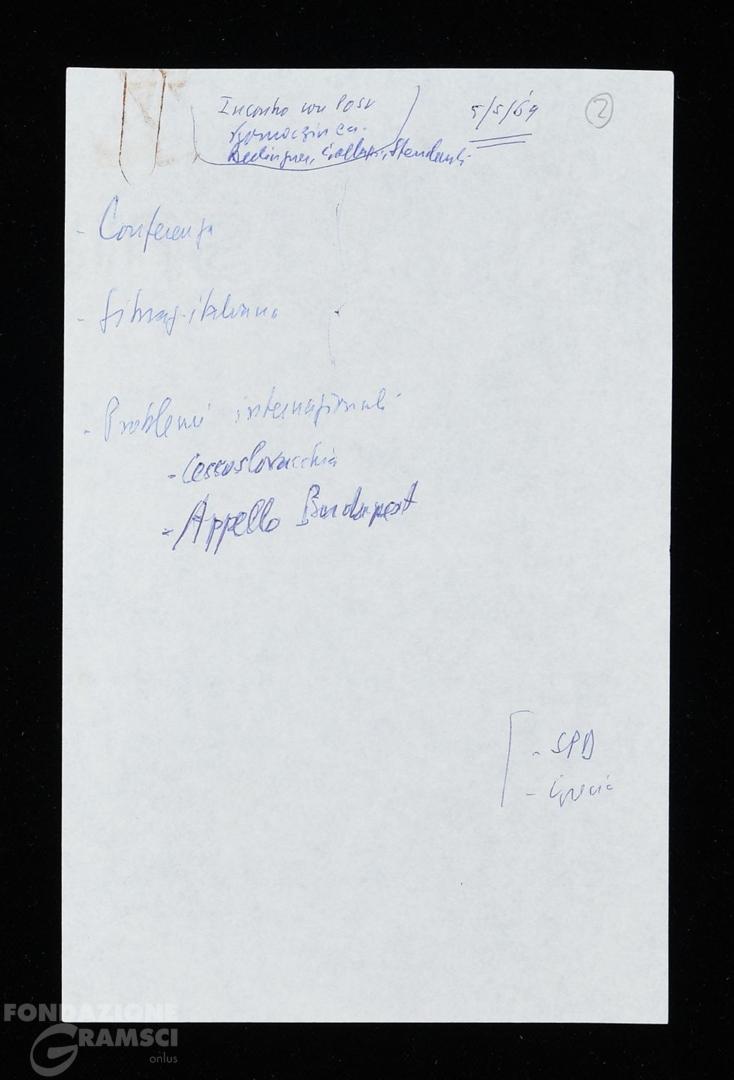 Incontro con POSU 5/5/69 2
Berlinguer, Galluzzi,
- Conferenza
- Situaz. italiana
- Problemi internazionali
- Cecoslovacchia
- Appello Budapest
- SPD
- Grecia
FONDAZIONE
GRAMSCI
onlus